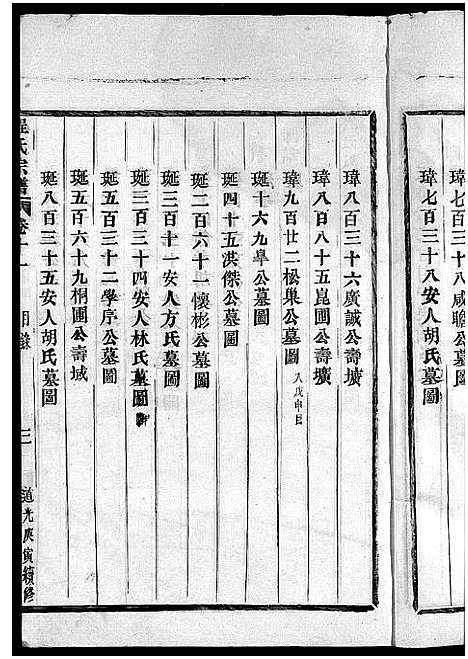 瑋七百三十八咸瞻公墓圖
瑋七百三十八安人胡氏墓圖
瑋八百三十六廣誠公壽壙
瑋八百八十五崑圃公壽壙
瑋九百廿二松巢公墓圖
珽十六九臯公墓圖
珽四十五洪傑公墓圖
珽二百六十一懷彬公墓圖
珽三百一十一安人方氏墓圖
珽三百三十四安人林氏墓圖
珽五百三十二學序公墓圖
珽五百六十九桐圃公壽域
珽八百三十五安人胡氏墓圖
氏宗譜 卷十一 目錄 三 道光庚寅續修